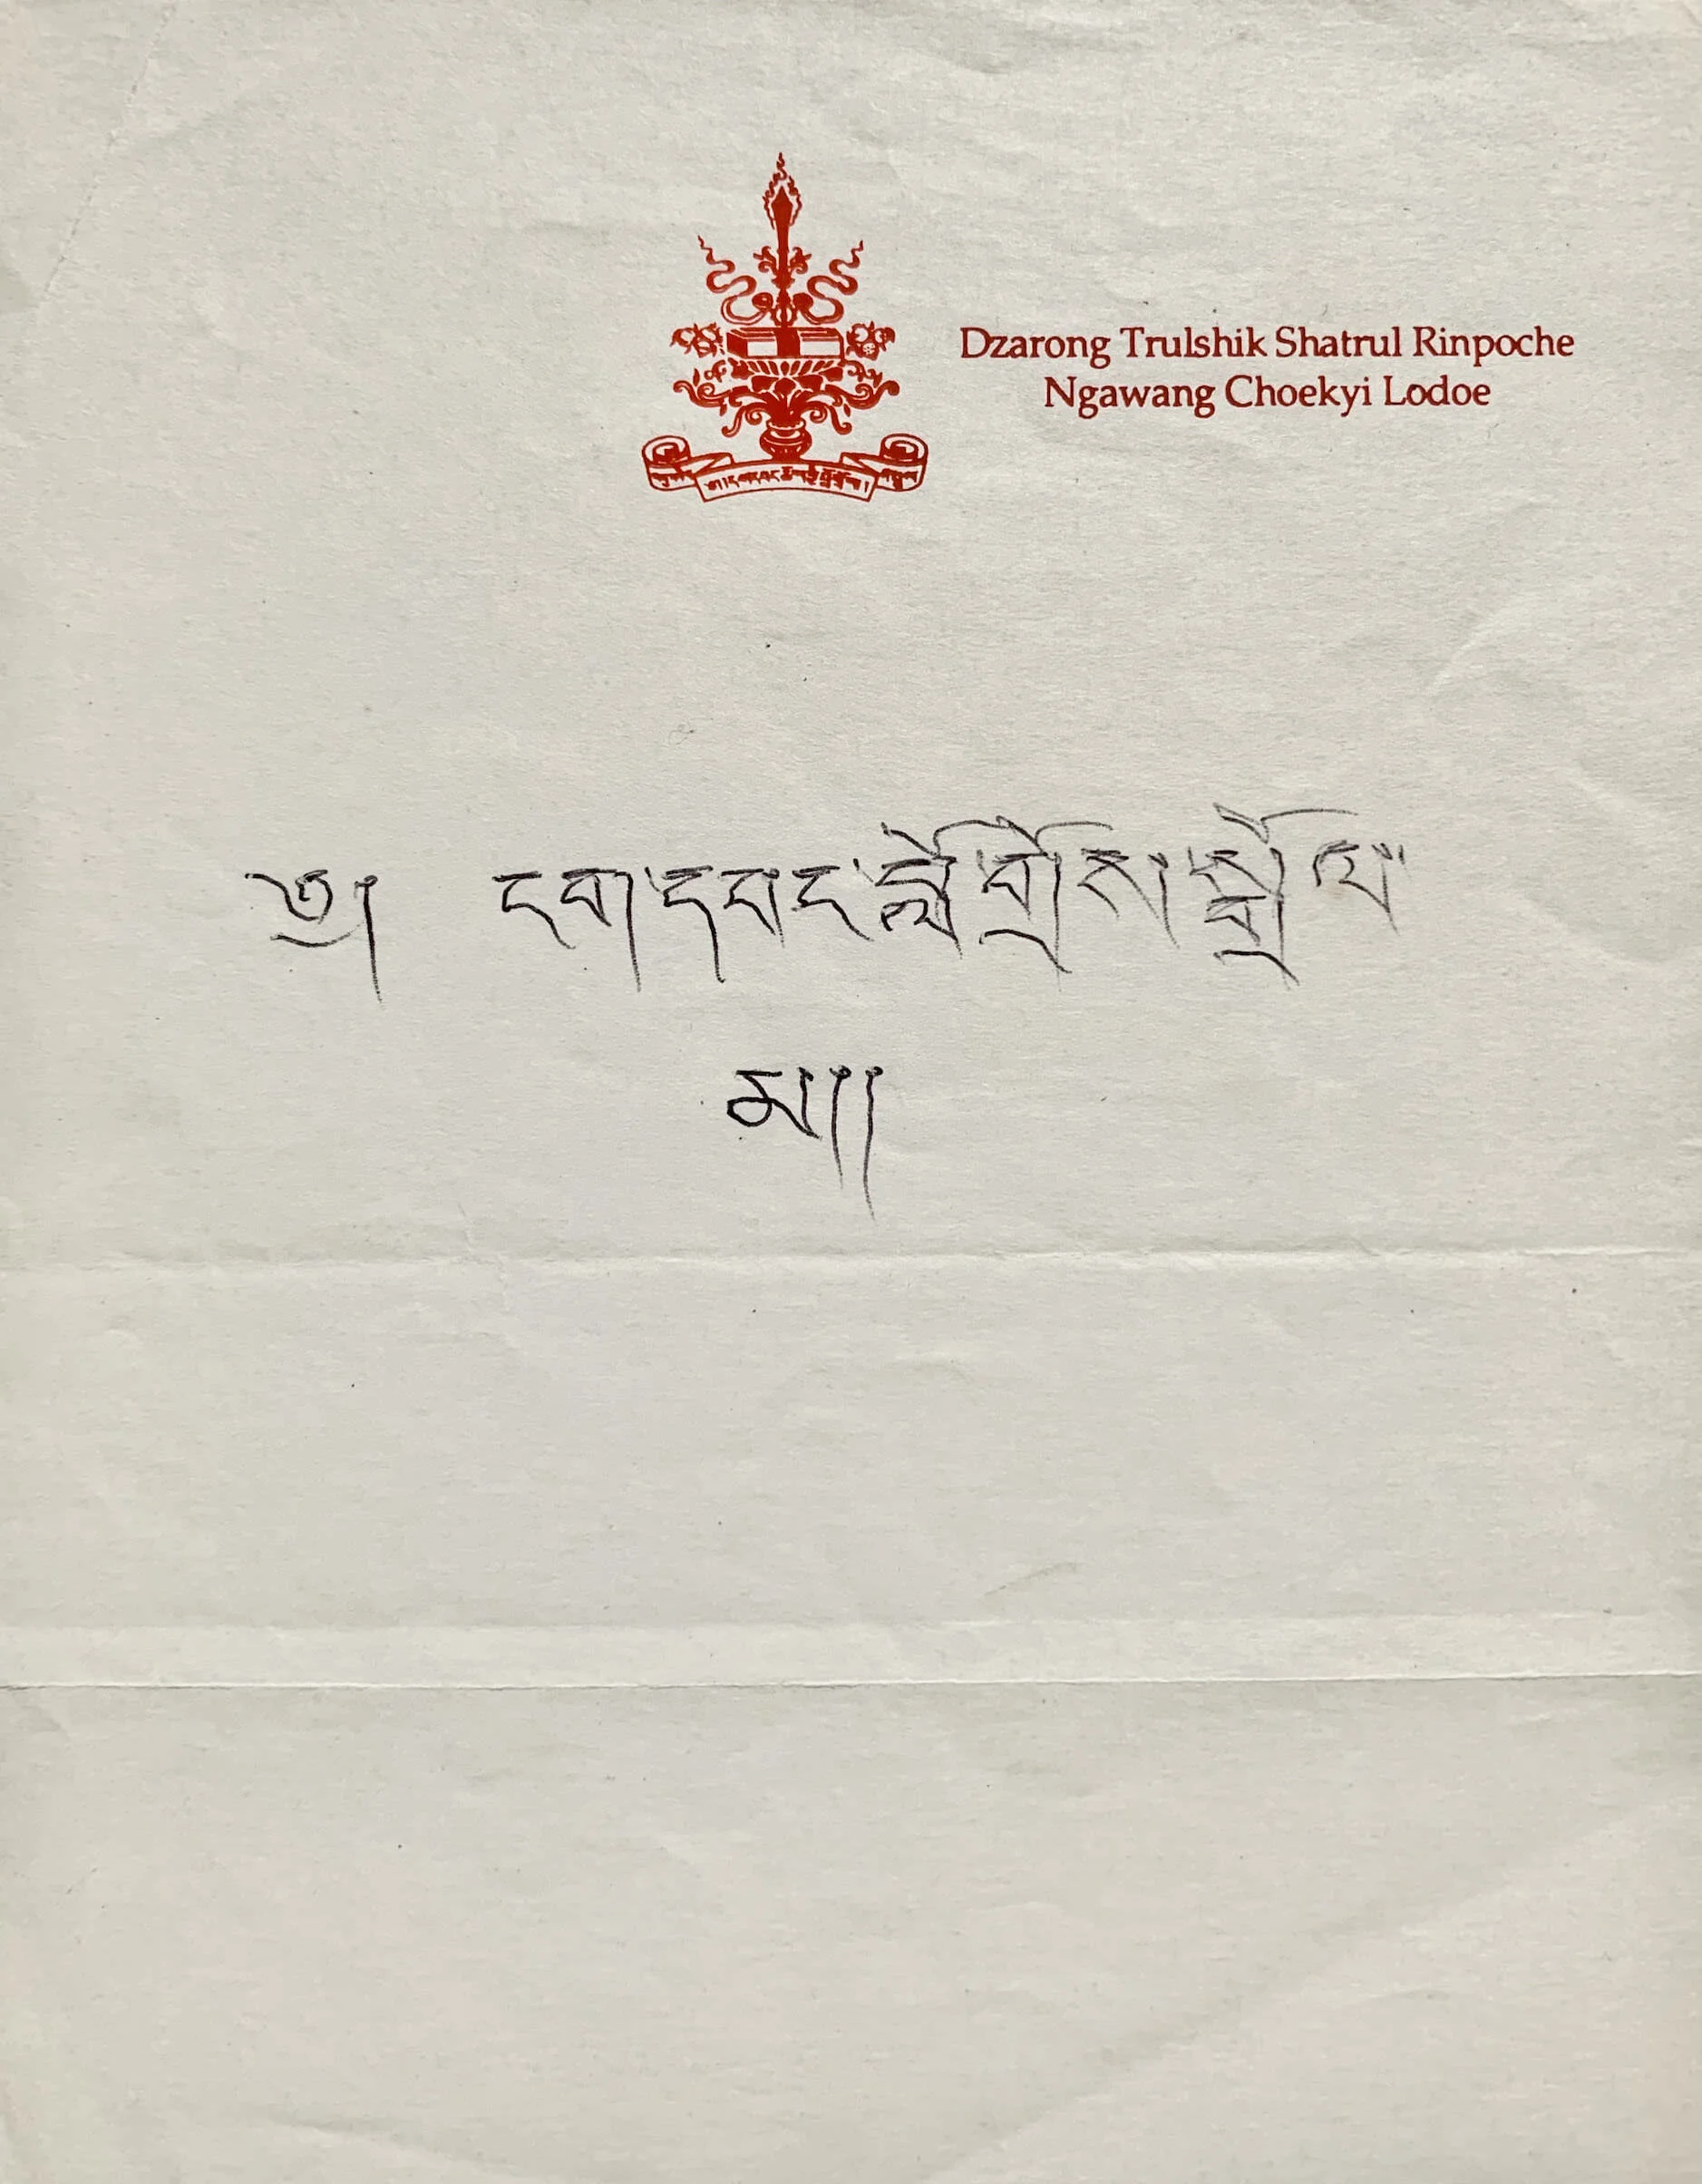 Dzarong Trulshik Shatrul Rinpoche
Ngawang Choekyi Lodoe
༄། ངག་དབང་བློ་གྲོས་སྒྲོལ་
མ།།